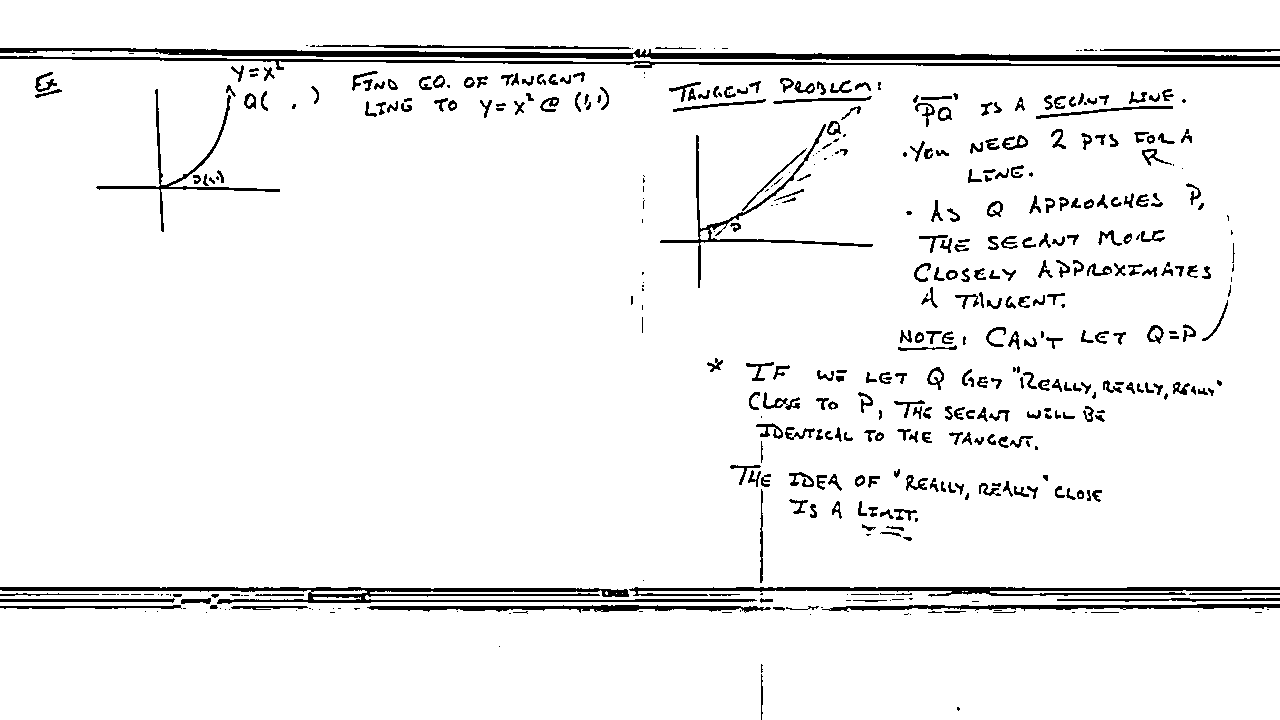 Ex
Y=X²
Q( , )
P(1,1)
FIND EQ. OF TANGENT
LINE TO Y=X² @ (1,1)
TANGENT PROBLEM:
Q
P
"PQ" IS A SECANT LINE.
• YOU NEED 2 PTS FOR A
LINE.
• AS Q APPROACHES P,
THE SECANT MORE
CLOSELY APPROXIMATES
A TANGENT.
NOTE: CAN'T LET Q=P
* IF WE LET Q GET "REALLY, REALLY, REALLY"
CLOSE TO P, THE SECANT WILL BE
IDENTICAL TO THE TANGENT.
THE IDEA OF "REALLY, REALLY" CLOSE
IS A LIMIT.